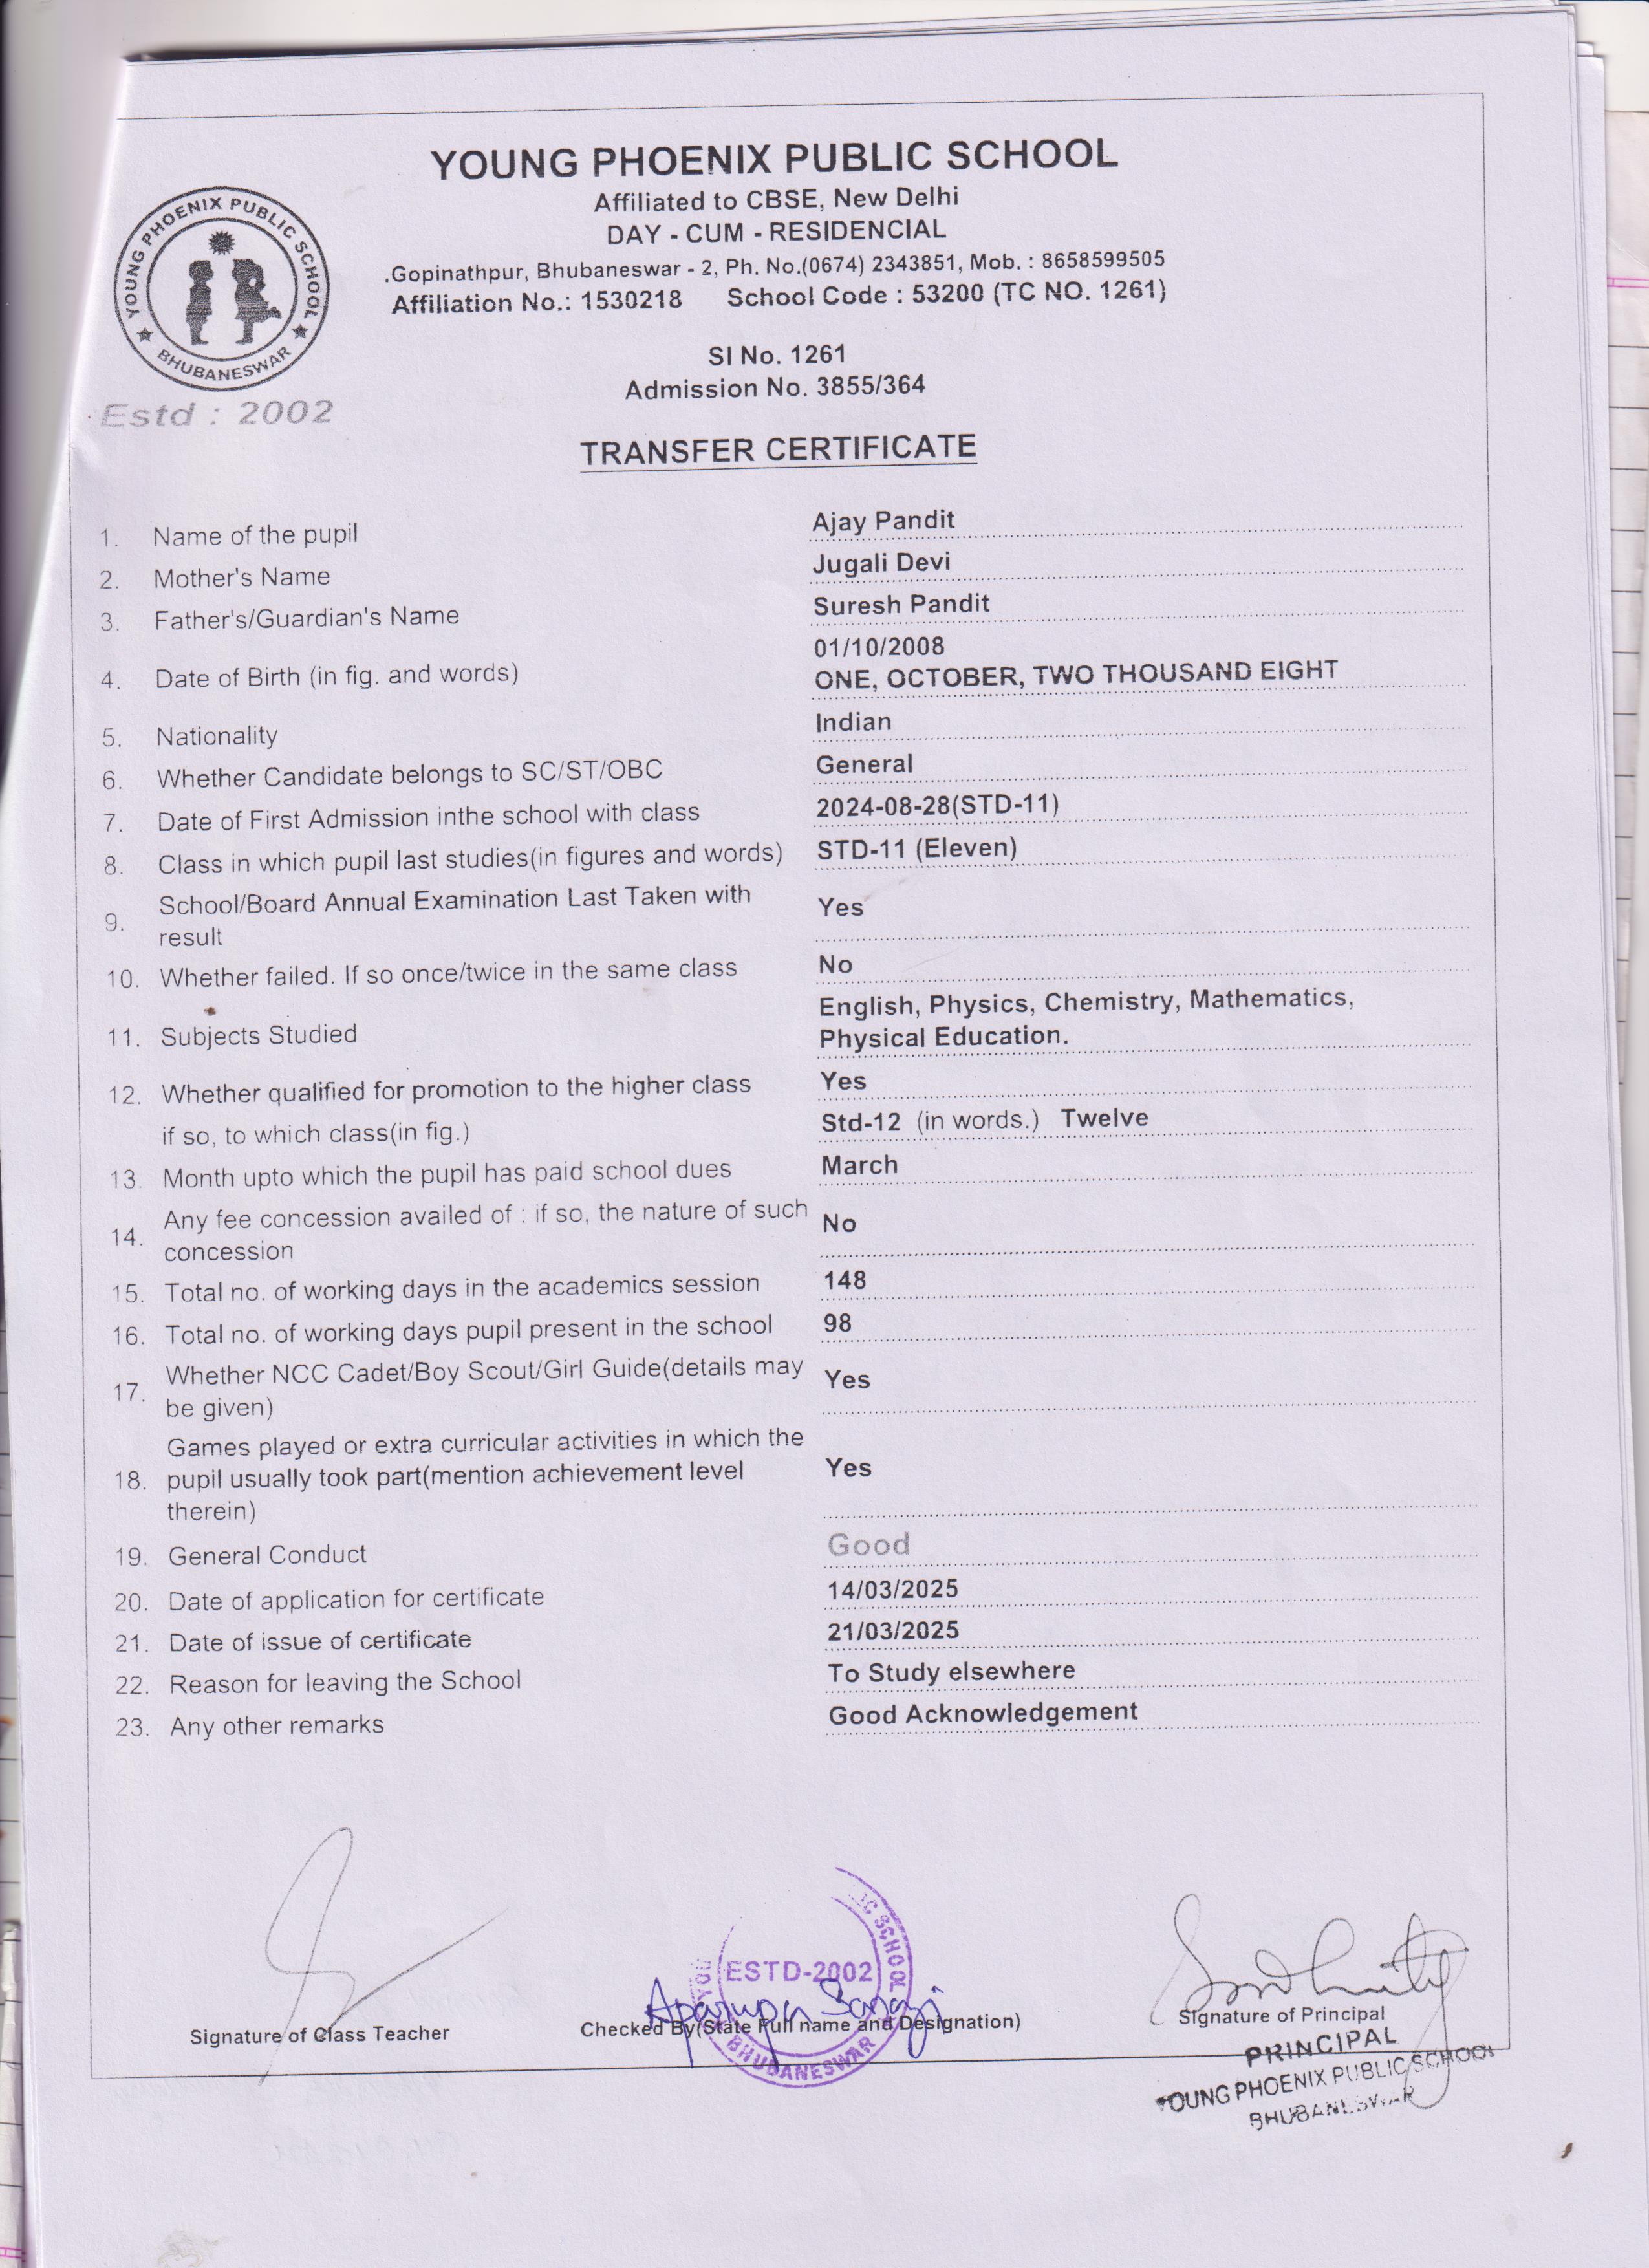 YOUNG PHOENIX PUBLIC SCHOOL
Affiliated to CBSE, New Delhi
DAY - CUM - RESIDENCIAL
.Gopinathpur, Bhubaneswar - 2, Ph. No.(0674) 2343851, Mob. : 8658599505
Affiliation No.: 1530218 School Code : 53200 (TC NO. 1261)
YOUNG PHOENIX PUBLIC SCHOOL
BHUBANESWAR
Estd : 2002
Sl No. 1261
Admission No. 3855/364
TRANSFER CERTIFICATE
1. Name of the pupil Ajay Pandit
2. Mother's Name Jugali Devi
3. Father's/Guardian's Name Suresh Pandit
01/10/2008
4. Date of Birth (in fig. and words) ONE, OCTOBER, TWO THOUSAND EIGHT
5. Nationality Indian
6. Whether Candidate belongs to SC/ST/OBC General
7. Date of First Admission inthe school with class 2024-08-28(STD-11)
8. Class in which pupil last studies(in figures and words) STD-11 (Eleven)
9. School/Board Annual Examination Last Taken with Yes
result
10. Whether failed. If so once/twice in the same class No
English, Physics, Chemistry, Mathematics,
11. Subjects Studied Physical Education.
12. Whether qualified for promotion to the higher class Yes
if so, to which class(in fig.) Std-12 (in words.) Twelve
13. Month upto which the pupil has paid school dues March
14. Any fee concession availed of : if so, the nature of such No
concession
15. Total no. of working days in the academics session 148
16. Total no. of working days pupil present in the school 98
17. Whether NCC Cadet/Boy Scout/Girl Guide(details may Yes
be given)
Games played or extra curricular activities in which the
18. pupil usually took part(mention achievement level Yes
therein)
19. General Conduct Good
20. Date of application for certificate 14/03/2025
21. Date of issue of certificate 21/03/2025
22. Reason for leaving the School To Study elsewhere
23. Any other remarks Good Acknowledgement
IC SCHOOL
YOU ESTD-2002
Aparupa
Signature of Class Teacher Checked By(State Full name and Designation) Signature of Principal
BHUBANESWAR
PRINCIPAL
YOUNG PHOENIX PUBLIC SCHOOL
BHUBANESWAR